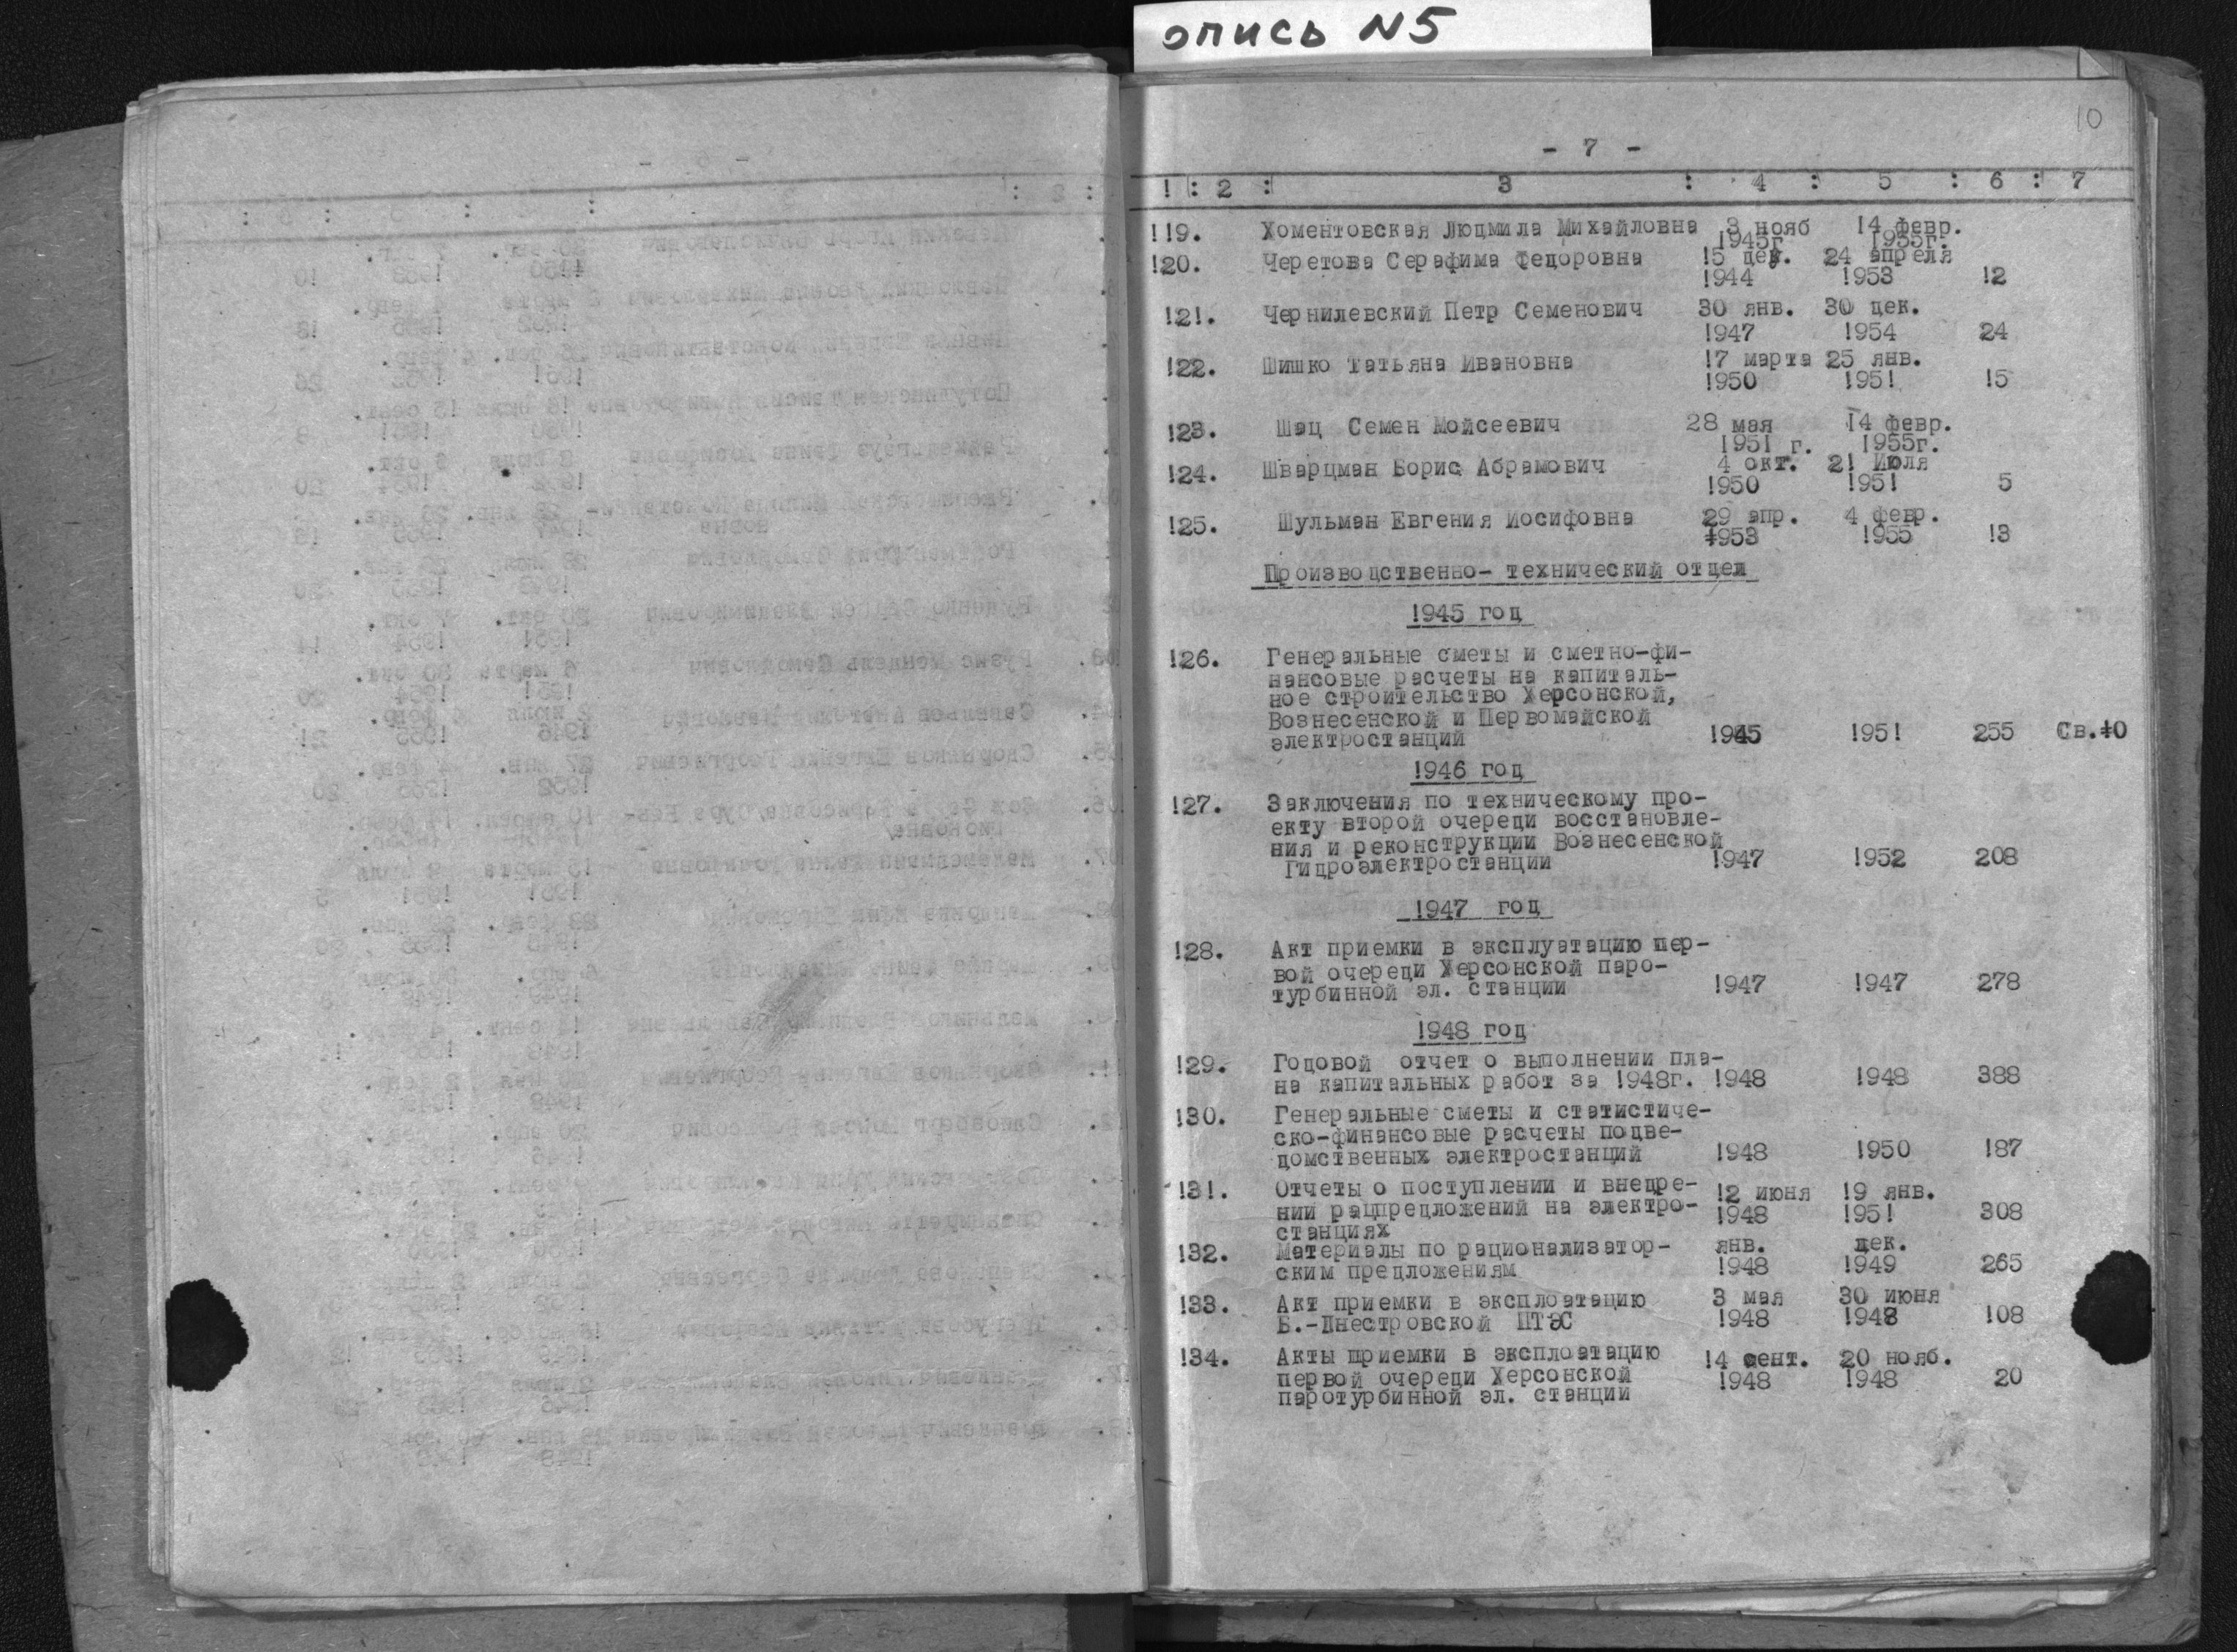 опись N5
10
- 7 -
1 : 2 : 3 : 4 : 5 : 6 : 7
119. Хоментовская Людмила Михайловна 3 нояб 14 февр.
1945г 1955г.
120. Черетова Серафима Федоровна 15 дек. 24 апреля
1944 1953 12
121. Чернилевский Петр Семенович 30 янв. 30 дек.
1947 1954 24
122. Шишко Татьяна Ивановна 17 марта 25 янв.
1950 1951 15
123. Шац Семен Мойсеевич 28 мая 14 февр.
1951 г. 1955г.
124. Шварцман Борис Абрамович 4 окт. 21 Июля
1950 1951 5
125. Шульман Евгения Иосифовна 29 апр. 4 февр.
1953 1955 13
Производственно- технический отдел
1945 год
126. Генеральные сметы и сметно-фи-
нансовые расчеты на капиталь-
ное строительство Херсонской,
Вознесенской и Первомайской
электростанций 1945 1951 255 Св.10
1946 год
127. Заключения по техническому про-
екту второй очереди восстановле-
ния и реконструкции Вознесенской
Гидроэлектростанции 1947 1952 208
1947 год
128. Акт приемки в эксплуатацию пер-
вой очереди Херсонской паро-
турбинной эл. станции 1947 1947 278
1948 год
129. Годовой отчет о выполнении пла-
на капитальных работ за 1948г. 1948 1948 388
130. Генеральные сметы и статистиче-
ско-финансовые расчеты подве-
домственных электростанций 1948 1950 187
131. Отчеты о поступлении и внедре- 12 июня 19 янв.
нии рацпредложений на электро- 1948 1951 308
станциях
132. Материалы по рационализатор- янв. дек.
ским предложениям 1948 1949 265
133. Акт приемки в эксплоатацию 3 мая 30 июня
Б.-Днестровской ПТЭС 1948 1948 108
134. Акты приемки в эксплоатацию 14 сент. 20 нояб.
первой очереди Херсонской 1948 1948 20
паротурбинной эл. станции